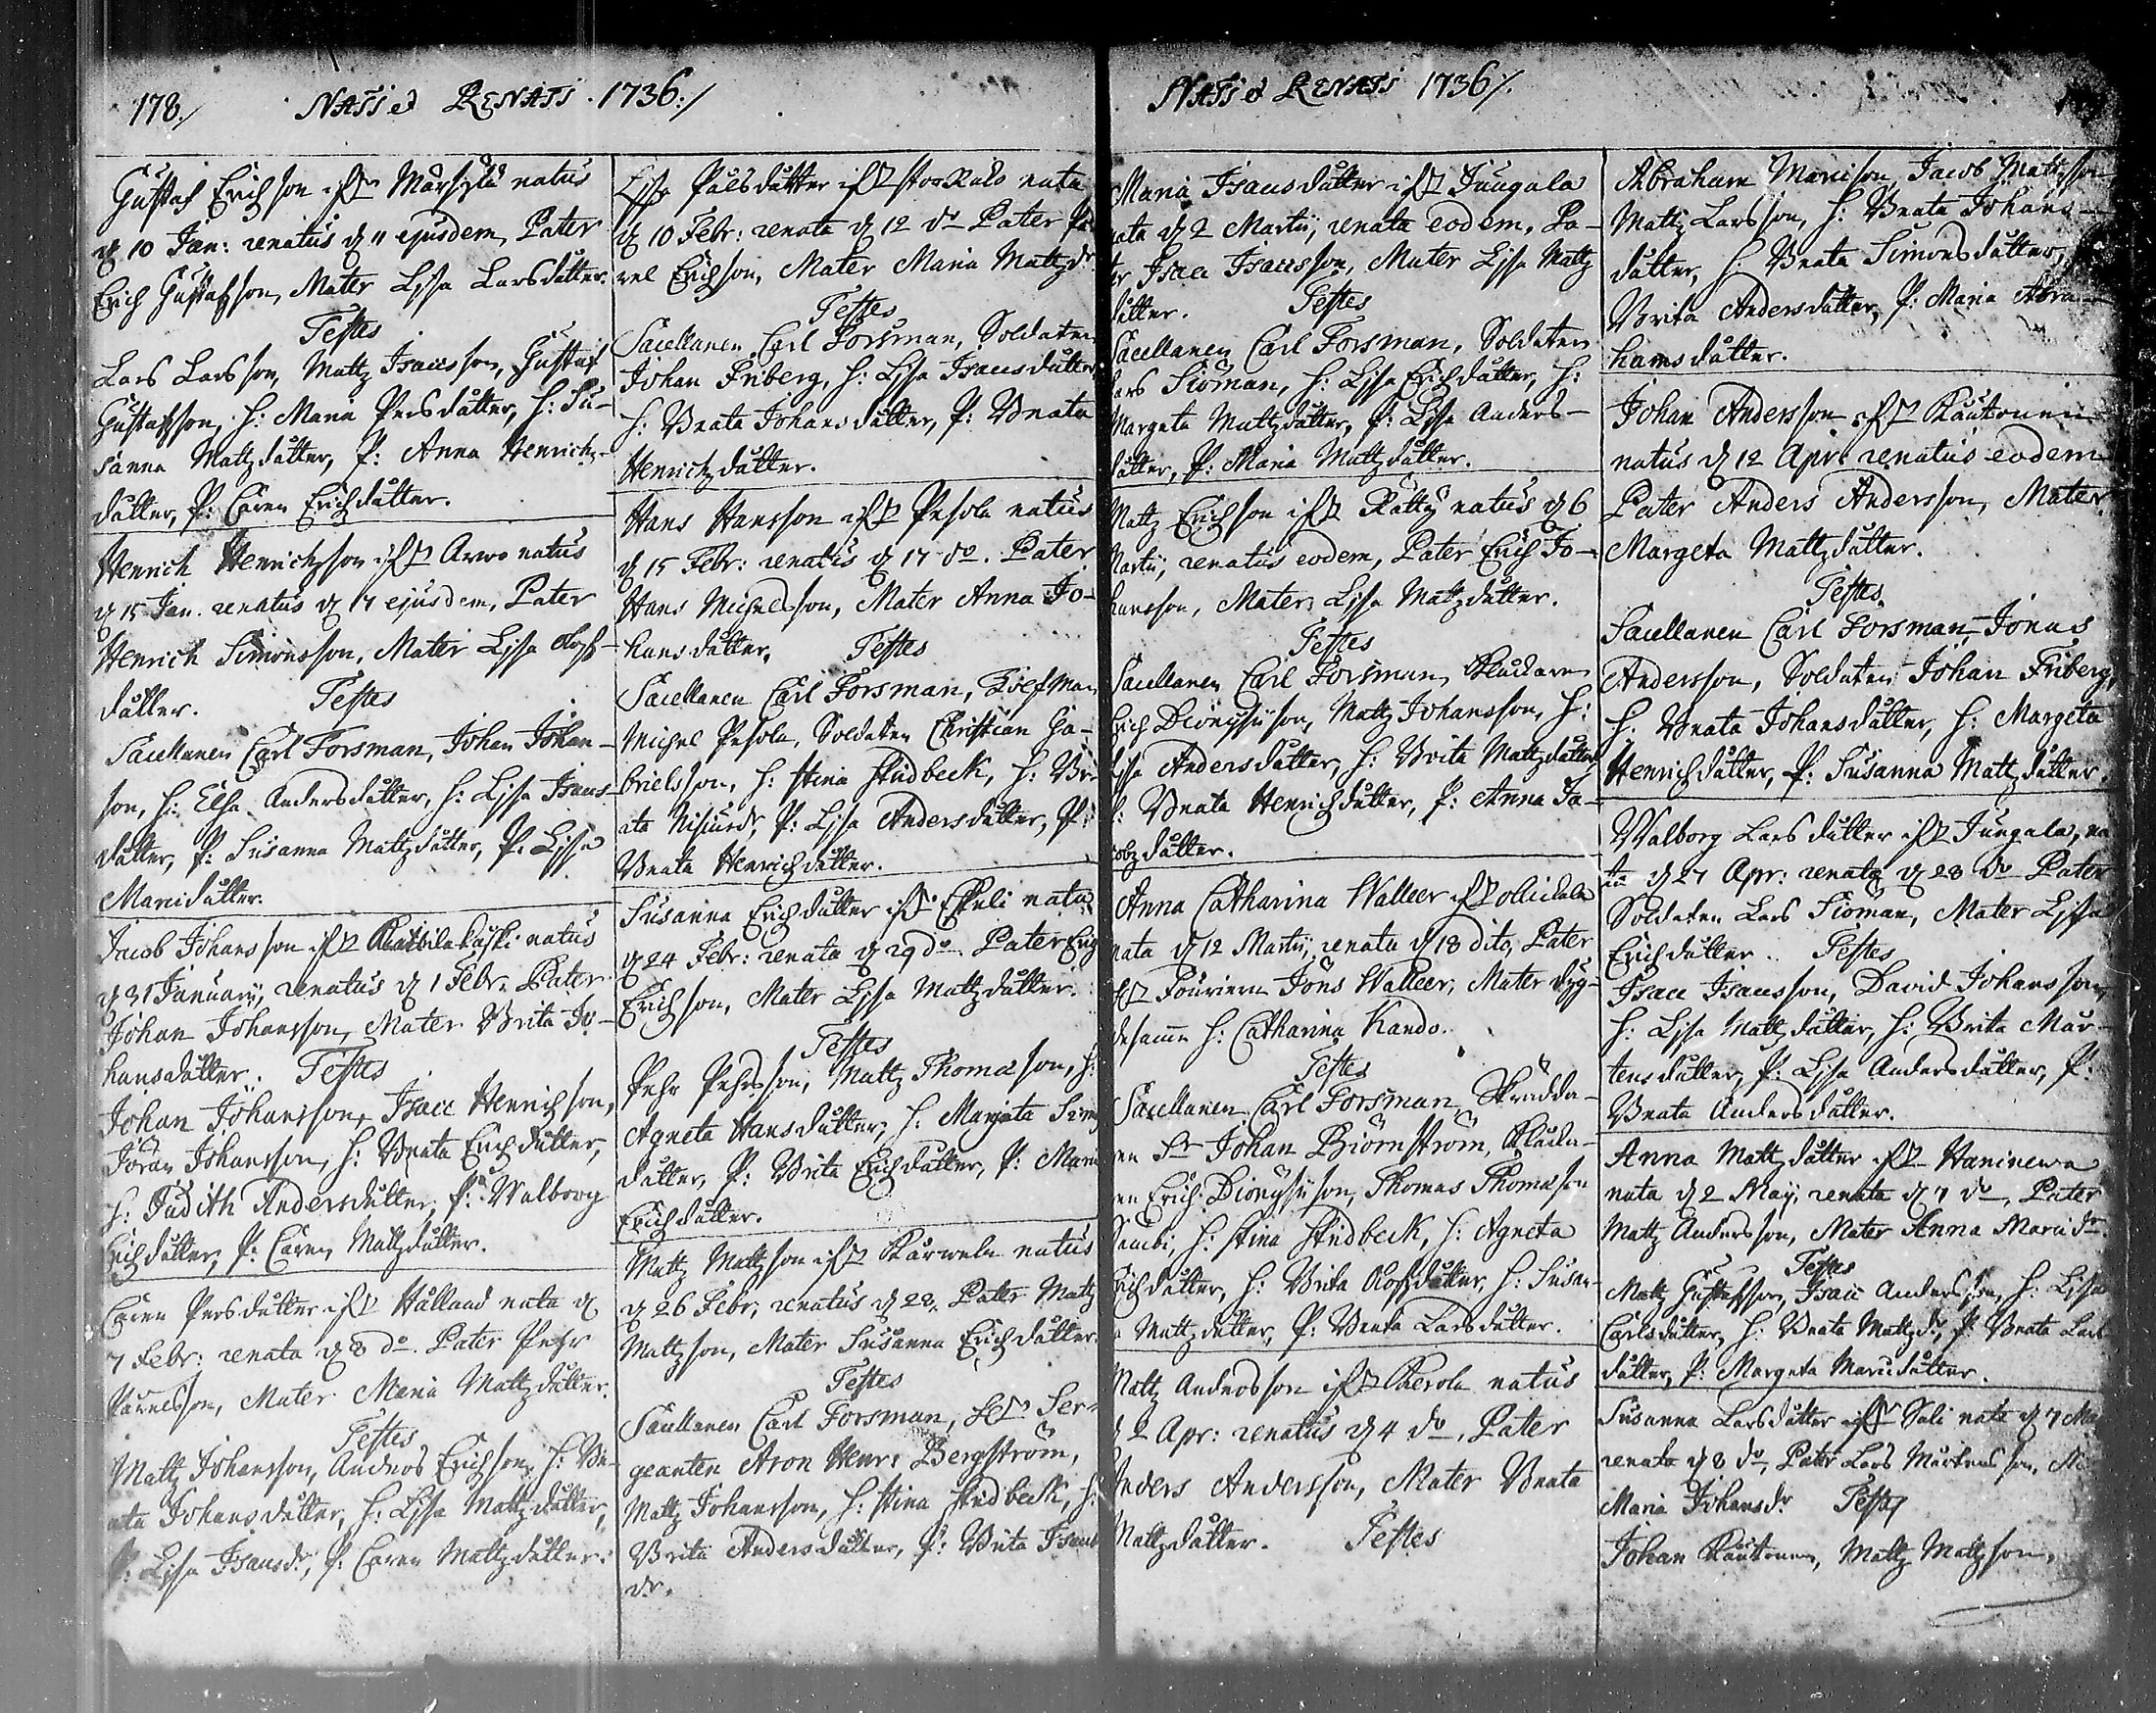 178./ NATI et RENATI. 1736:/
Gustaf Erichson ifrån Mårskylä natus
d 10 Jan: renatus d 11 ejusdem, Pater
Erich Gustafsson, Mater Lisa Larsdåtter.
Testes
Lars Larsson, Mattz Isacsson, Gustaf
Gustafsson, H: Maria Persdåtter, H: Su-
sanna Mattzdåtter, P: Anna Henrichs-
dåtter, P: Caren Erichdåtter.
Henrich Henrichsson ifrån Arvo natus
d 15 Jan. renatus d 17 ejusdem, Pater
Henrich Simonsson, Mater Lisa Olofs-
dåtter. Testes
Sacellanen Carl Forsman, Johan Johan-
son, H: Elsa Andersdåtter, H: Lisa Isacs-
dåtter, P: Susanna Mattzdåtter, P: Lisa
Marcidåtter.
Jacob Johansson ifrån natus
d 31 January, renatus d 1 Febr. Pater
Johan Johansson, Mater Brita Jo-
hansdåtter. Testes
Johan Johansson, Isacc Henrichson,
Jöran Johansson, H: Beata Erichdåtter,
H: Judith Andersdåtter, P: Walborg
Erichdåtter, P: Caren Mattzdåtter.
Caren Persdåtter ifrån Hålland nata d
7 Febr: renata d 8 do. Pater Pehr
Påvelsson, Mater Maria Mattzdåtter.
Testes
Mattz Johansson, Anders Erichson, H: Be-
ata Johansdåtter, H: Lisa Mattzdåtter,
P: Lisa Isacsdr, P: Caren Mattzdåtter.
Lisa Pålsdåtter ifrån nata
d 10 Febr: renata d 12 do Pater På-
vel Erichson, Mater Maria Mattzdr
Testes
Sacellanen Carl Forsman, Soldaten
Johan Friberg, H: Lisa Isacsdåtter
H: Beata Johansdåtter, P: Beata
Henrichdåtter.
Hans Hansson ifrån Pesola natus
d 15 Febr: renatus d 17 do. Pater
Hans Michelsson, Mater Anna Jo-
hansdåtter. Testes
Sacellanen Carl Forsman,
Michel Pesola, Soldaten Christian Ga-
brielsson, H: Stina Studbeck, H: Be-
ata P: Lisa Andersdåtter, P:
Beata Henrichdåtter.
Susanna Erichdåtter ifrån Eskeli nata
d 24 Febr: renata d 29 do Pater Erich
Erichson, Mater Lisa Mattzdåtter.
Testes
Pehr Pehrsson, Mattz Thomæson, H:
Agneta Hansdåtter, H: Margeta Simons
dåtter, P: Brita Erichdåtter, P: Maria
Erichdåtter.
Mattz Mattzson ifrån Karwela natus
d 26 Febr, renatus d 28. Pater Mattz
Mattzson, Mater Susanna Erichdåtter.
Testes
Sacellanen Carl Forsman, Ser-
geanten Aron Henr: Bergström,
Mattz Johansson, H: Stina Studbeck, H:
Brita Andersdåtter, P: Brita Isacs
dr.
NATI et RENATI 1736/.
Maria Isacsdåtter ifrån Jungala
nata d 2 Martii, renata eodem, Pa-
ter Isacc Isacsson, Mater Lisa Mattz
dåtter. Testes
Sacellanen Carl Forsman, Soldaten
Lars Siöman, H: Lisa Erichdåtter, H:
Margeta Mattzdåtter, P: Lisa Anders-
dåtter, P: Maria Mattzdåtter.
Mattz Erichson ifrån Rätty natus d 6
Martii, renatus eodem, Pater Erich Jo-
hansson, Mater Lisa Mattzdåtter.
Testes
Sacellanen Carl Forsman,
Erich Dionysiison, Mattz Johansson, H:
Lisa Andersdåtter, H: Brita Mattzdåtter
P: Beata Henrichdåtter, P: Anna Ja-
cobzdåtter.
Anna Catharina Walleer ifrån
nata d 12 Martii, renata d 18 dito, Pater
Fourieren Jöns Walleer, Mater dyg-
desamma H: Catharina Kando.
Testes
Sacellanen Carl Forsman, Skrädda-
ren Johan Biörnström,
Erich Dionysiison, Thomas Thomæson
H: Stina Studbeck, H: Agneta
Erichdåtter, H: Brita Olofsdåtter, H: Susan-
na Mattzdåtter, P: Beata Larsdåtter.
Mattz Andersson ifrån Kerola natus
d 2 Apr: renatus d 4 do, Pater
Anders Andersson, Mater Beata
Mattzdåtter. Testes
Abraham Marcison, Jacob Mattzson
Mattz Larsson, H: Beata Johans-
dåtter, H Beata Simonsdåtter,
Brita Andersdåtter, P: Maria Abra-
hamsdåtter.
Johan Andersson ifrån Rautonen
natus d 12 Apr: renatus eodem
Pater Anders Andersson, Mater
Margeta Mattzdåtter.
Testes
Sacellanen Carl Forsman, Jonas
Andersson, Soldaten Johan Friberg,
H. Beata Johansdåtter, H: Margeta
Henrichdåtter, P: Susanna Mattzdåtter.
Walborg Larsdåtter ifrån Jungala, na
ta d 27 Apr: renata d 28 do Pater
Soldaten Lars Siöman, Mater Lisa
Erichdåtter. Testes
Isacc Isacsson, David Johansson,
H: Lisa Mattzdåtter, H: Brita Mår-
tensdåtter, P: Lisa Andersdåtter, P:
Beata Andersdåtter.
Anna Mattzdåtter ifrån Haninewa
nata d 2 May, renata d 7 do, Pater
Mattz Andersson, Mater Anna Marcidr.
Testes
Mattz Gustafsson, Isacc Andersson, H: Lisa
Carlsdåtter, H: Beata Mattzdr, P: Beata Lars
dåtter, P: Margeta Marcidåtter.
Susanna Larsdåtter ifrån Sali nata d 7 May
renata d 8 do, Pater Lars Mårtensson,
Maria Johansdr Testes
Johan Rautonen, Mattz Mattzson,